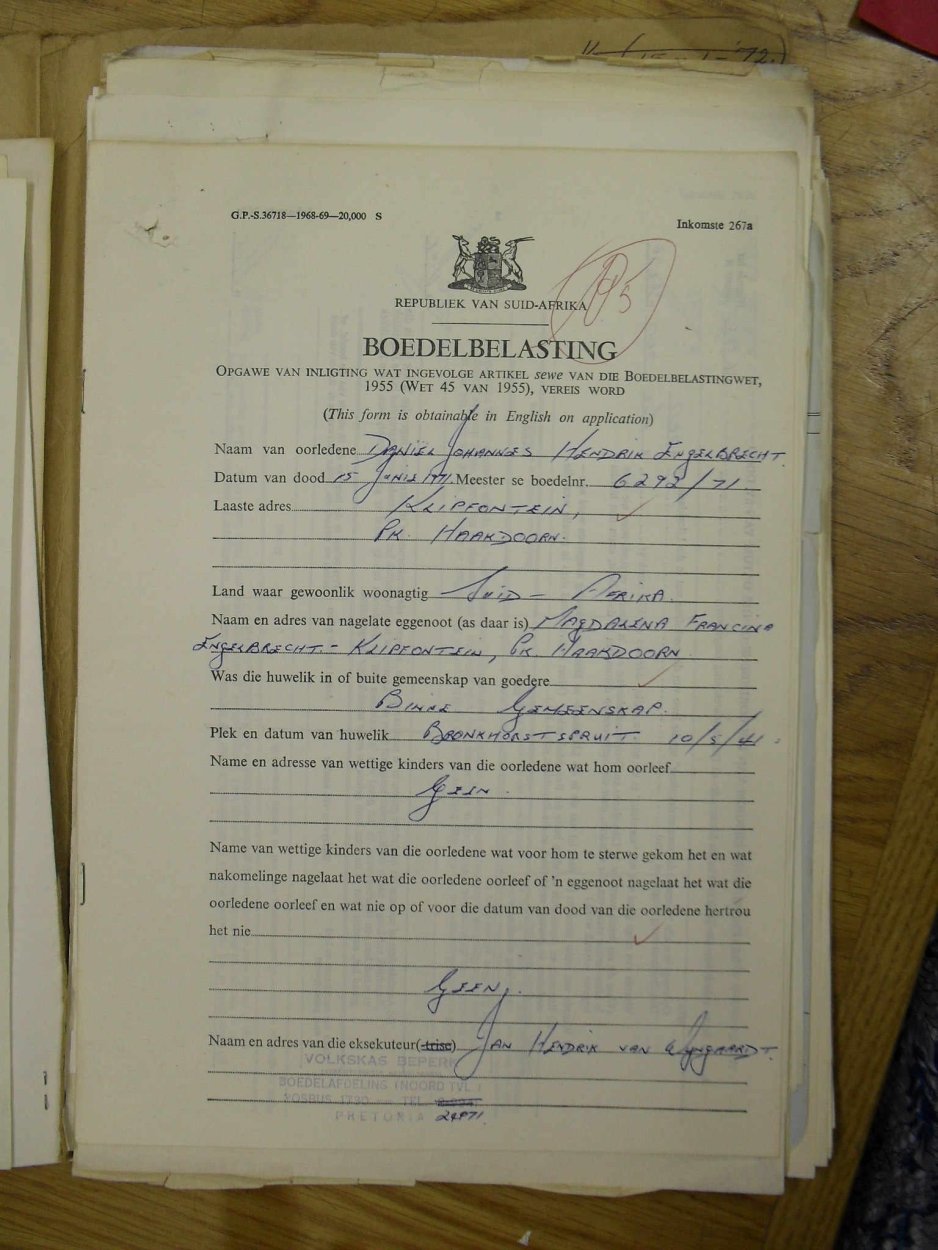 G.P.-S.36718—1968-69—20,000 S
Inkomste 267a
REPUBLIEK VAN SUID-AFRIKA
BOEDELBELASTING
OPGAWE VAN INLIGTING WAT INGEVOLGE ARTIKEL sewe VAN DIE BOEDELBELASTINGWET,
1955 (WET 45 VAN 1955), VEREIS WORD
(This form is obtainable in English on application)
Naam van oorledene DANIEL JOHANNES HENDRIK ENGELBRECHT
Datum van dood 15 JUNIE 1971. Meester se boedelnr. 6292/71.
Laaste adres KLIPFONTEIN,
PK. HAAKDOORN.
Land waar gewoonlik woonagtig SUID-AFRIKA.
Naam en adres van nagelate eggenoot (as daar is) MAGDALENA FRANCINA
ENGELBRECHT - KLIPFONTEIN, PK. HAAKDOORN
Was die huwelik in of buite gemeenskap van goedere
BINNE GEMEENSKAP.
Plek en datum van huwelik BRONKHORSTSPRUIT. 10/5/41.
Name en adresse van wettige kinders van die oorledene wat hom oorleef
GEEN.
Name van wettige kinders van die oorledene wat voor hom te sterwe gekom het en wat
nakomelinge nagelaat het wat die oorledene oorleef of 'n eggenoot nagelaat het wat die
oorledene oorleef en wat nie op of voor die datum van dood van die oorledene hertrou
het nie
GEEN.
Naam en adres van die eksekuteur(-trise) JAN HENDRIK VAN WYNGAARDT.
VOLKSKAS BEPERK
BOEDELAFDELING (NOORD TVL.)
POSBUS TEL.
PRETORIA